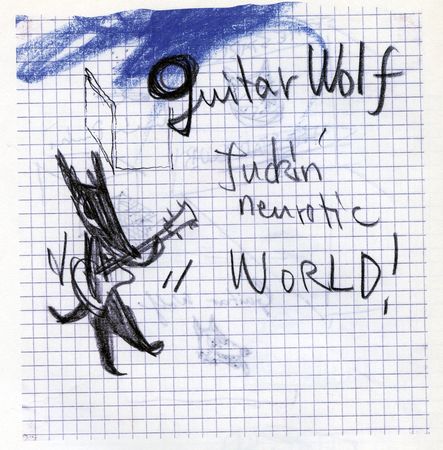 guitar Wolf
fuckin'
neurotic
WORLD!